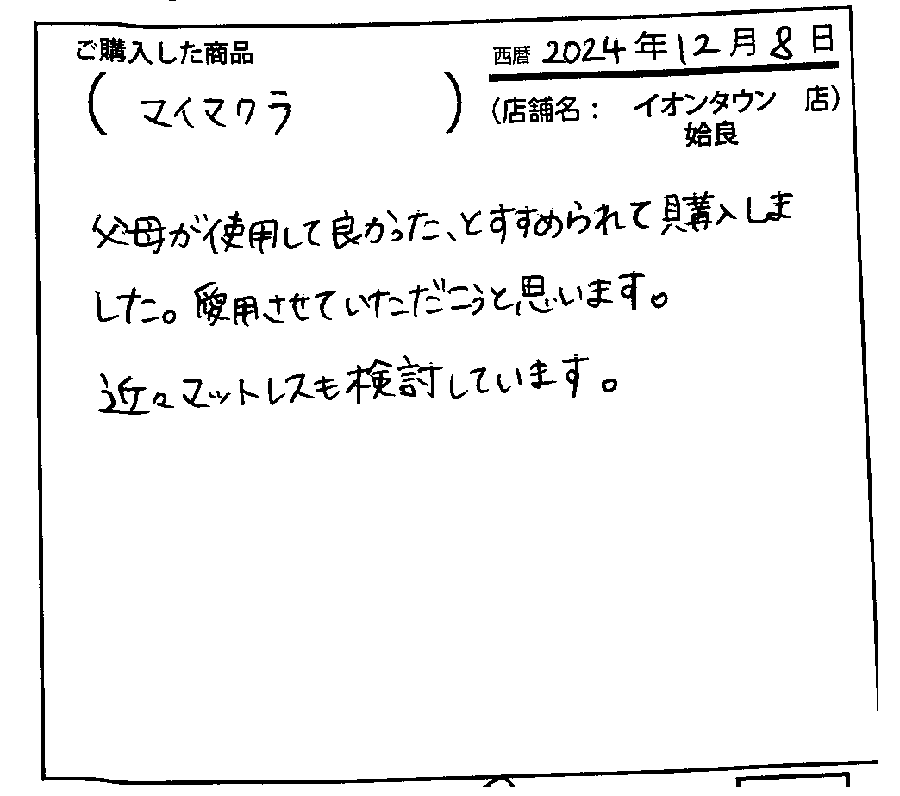 ご購入した商品
(マイマクラ)
西暦 2024年12月8日
(店舗名: イオンタウン 店)
姶良
父母が使用して良かった、とすすめられて購入しま
した。愛用させていただこうと思います。
近々マットレスも検討しています。